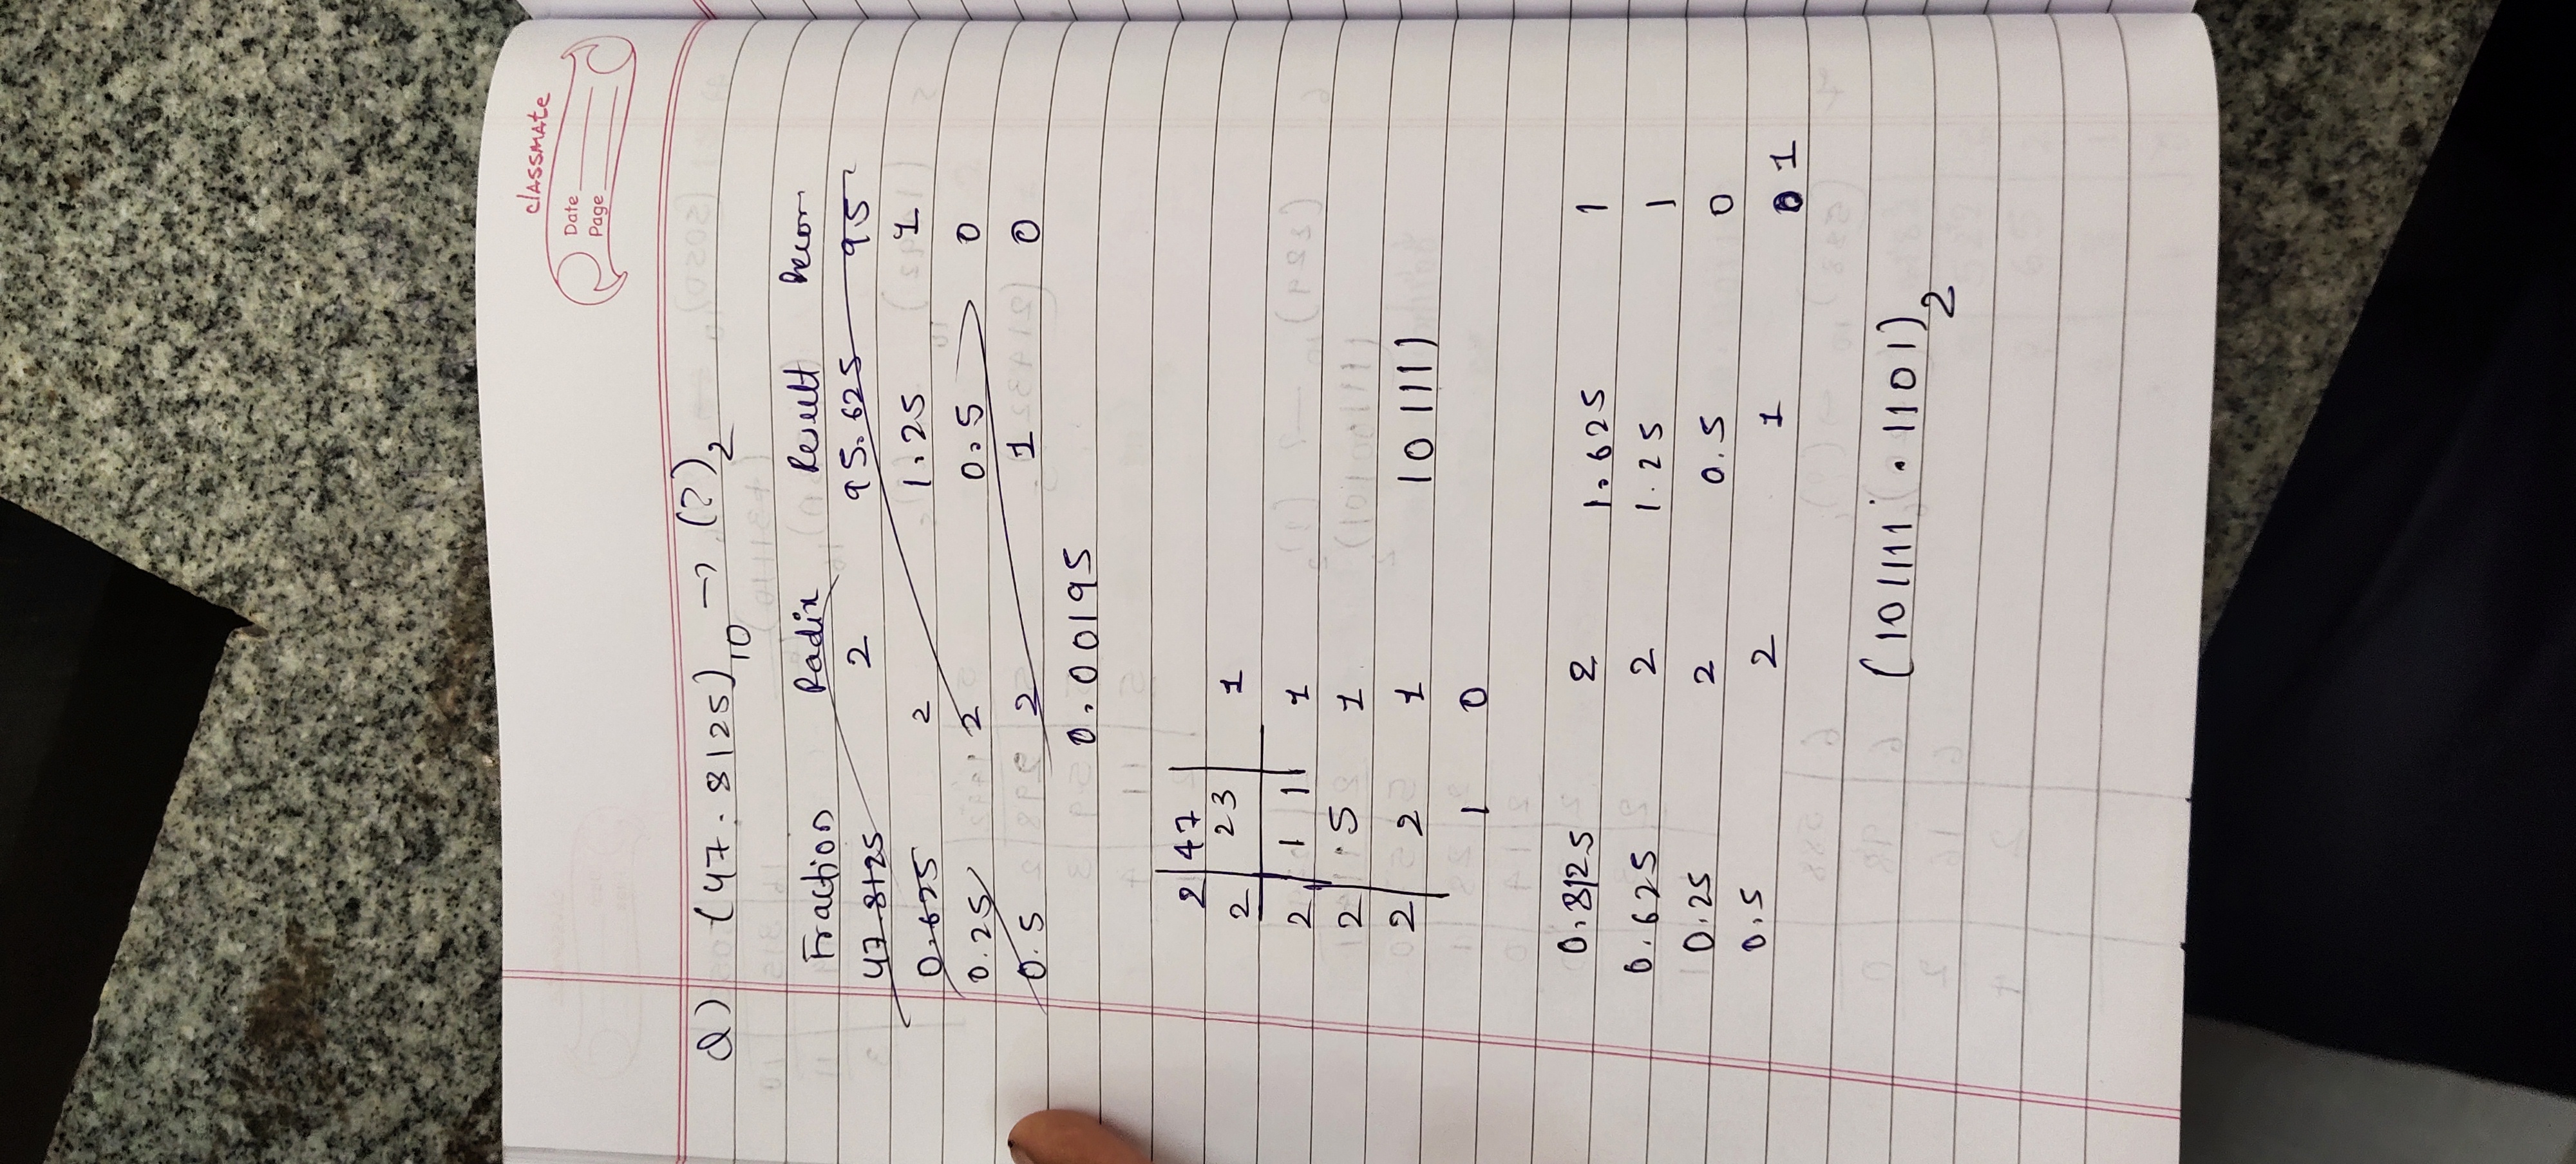 classmate
Date
Page
Q) (47.8125)10 → (?)2
Fraction Radix Result
47.8125 2 95.625 95
0.625 2 1.25 1
0.25 2 0.5 0
0.5 2 1 0
0.00195
2 47
2 23 1
2 11 1
2 5 1
2 2 1 101111
1 0
0.8125 2 1.625 1
0.625 2 1.25 1
0.25 2 0.5 0
0.5 2 1 1
(101111.1101)2